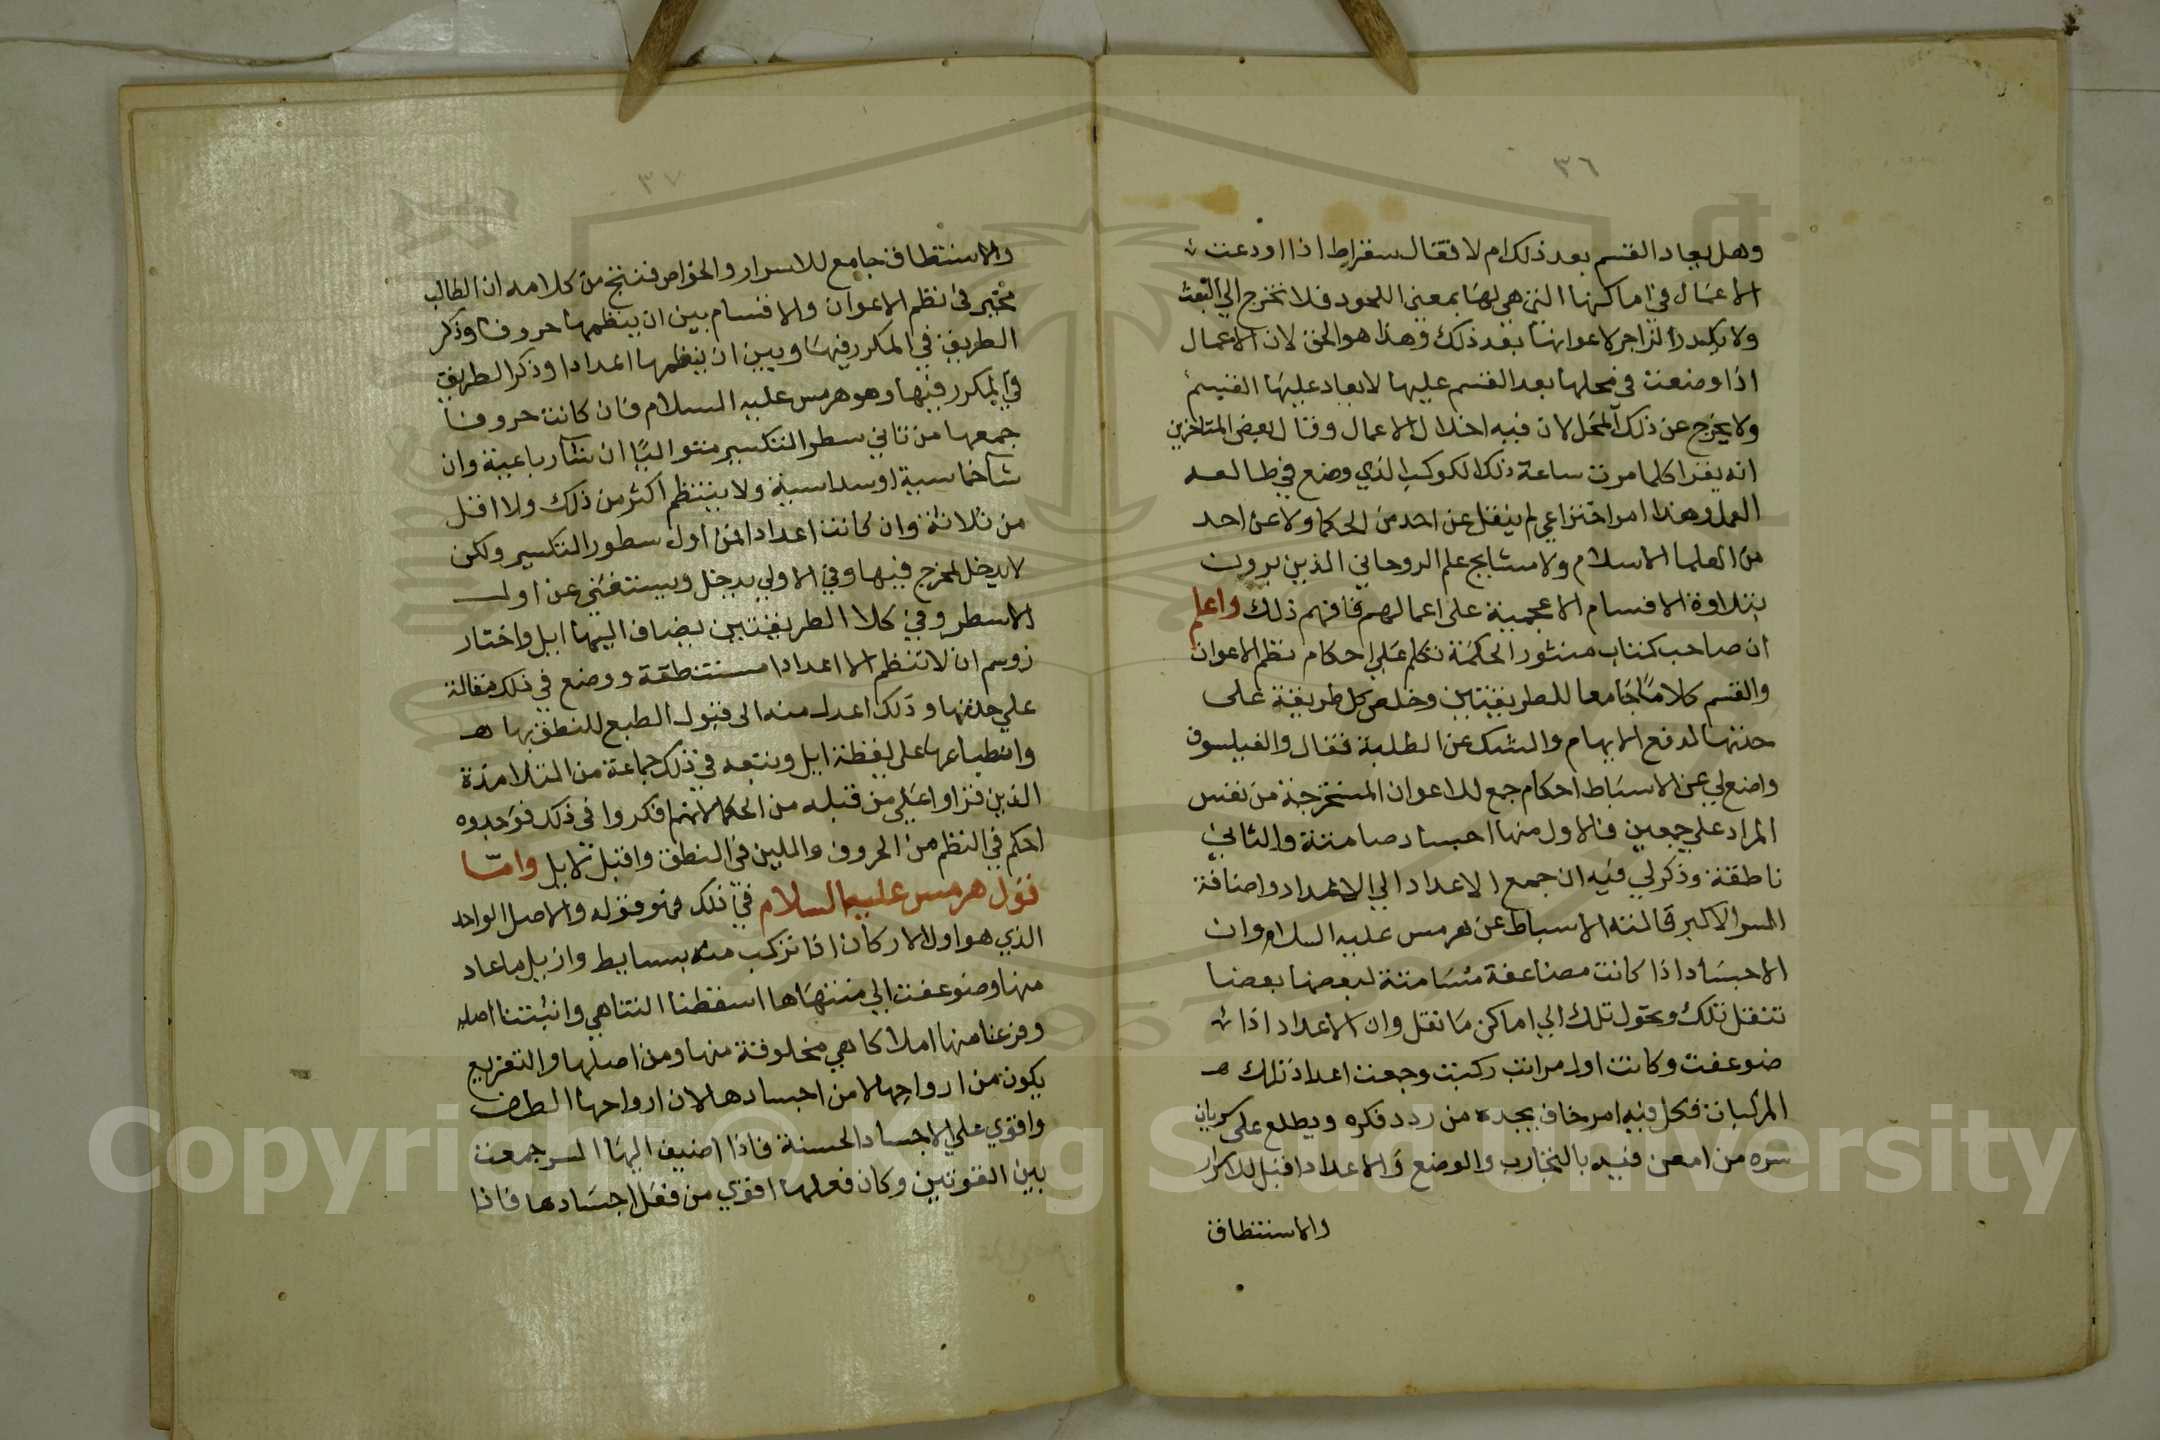 ٣٦
وهل يعاد القسم بعد ذلك ام لا فقال سقراط اذا اودعت
الاعمال في اماكنها التي هي لها بمعنى اللحود فلا تخرج الى البعث
ولا الزاجر لاعوانها بعد ذلك وهذا هو الحق لان الاعمال
اذا وضعت في محلها بعد القسم عليها لا يعاد عليها القسم
ولا يخرج عن ذلك المحل لان فيه اخلال الاعمال وقال بعض المتاخرين
انه يقرا كلما مرت ساعة ذلك الكوكب الذي وضع في طالعه
العمل وهذا امر اختراعي لم ينقل عن احد من الحكما ولا عن احد
من العلما الاسلام ولا مشايخ علم الروحاني الذين يرون
بتلاوة الاقسام الاعجمية على اعمالهم فافهم ذلك واعلم
ان صاحب كتاب منثور الحكمة تكلم على احكام نظم الاعوان
والقسم كلاما جامعا للطريقتين وخلص كل طريقة على
حدتها لدفع الايهام والشك عن الطلبة فقال والفيلسوف
واضع لي عن الاسباط احكام جمع للاعوان المستخرجة من نفس
المراد على جمعين فالاول منها اجساد صامتة والثاني
ناطقة وذكر لي فيه ان جمع الاعداد الى الاعداد واضافة
السر الاكبر قالته الاسباط عن هرمس عليه السلام وان
الاجساد اذا كانت مضاعفة متسامتة لبعضها بعضا
تنقل تلك وتحول تلك الى اماكن ما نقل وان الاعداد اذا
ضوعفت وكانت اول مراتب ركبت وجمعت اعداد تلك
المركبات فكل فيه امر خاف يجده من ردد فكره ويطلع على سريان
سره من امعن فيه بالتجارب والوضع والاعداد اقبل للاسرار
والاستنطاق
٣٧
والاستنطاق جامع للاسرار والخواص فنتج من كلامه ان الطالب
مخير في نظم الاعوان والاقسام بين ان ينظمها حروفا وذكر
الطريق في المكرر فيها وبين ان ينظمها اعدادا وذكر الطريق
في المكرر فيها وهو هرمس عليه السلام فان كانت حروفا
جمعها من ثاني سطر التكسير متواليا ان شا رباعية وان
شا خماسية او سداسية ولا ينتظم اكثر من ذلك ولا اقل
من ثلاثة وان كانت اعدادا فمن اول سطور التكسير ولكن
لا يدخل المخرج فيها وفي الاولى يدخل ويستغني عن اول
الاسطر وفي كلا الطريقتين يضاف اليها ايل واختار
زوسم ان لا تنظم الا اعدادا مستنطقة ووضع في ذلك مقالة
على حدتها وذلك اعدل منه الى قبول الطبع للنطق بها
وانطباعها على لفظة ايل وتبعه في ذلك جماعة من التلامذة
الذين قراوا على من قبله من الحكما لانهم فكروا في ذلك فوجدوه
احكم في النظم من الحروف والين في النطق واقبل لايل وامّا
قول هرمس عليه السلام في ذلك فهو قوله والاصل الواحد
الذي هو اول الاركان اذا تركب منه بسايط وازيل ما عاد
منها وضوعفت الى منتهاها اسقطنا التناهي واثبتنا اصله
وفرعنا منها املاكا هي مخلوقة منها ومن اصلها والتفريع
يكون من ارواحها لا من اجسادها لان ارواحها الطف
واقوى على الاجساد الحسنة فاذا اضيف اليها السر جمعت
بين القوتين وكان فعلها اقوى من فعل اجسادها فاذا
Copyright © King Saud University